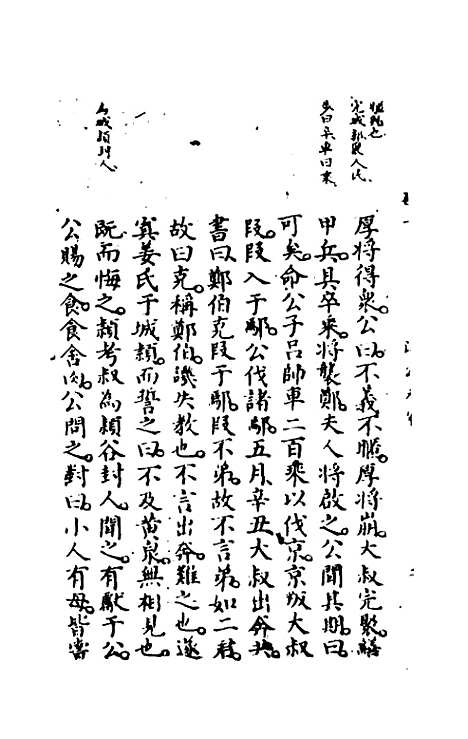 厚將得衆公曰不義不暱厚將崩大叔完聚繕
甲兵具卒乘將襲鄭夫人將啟之公聞其期曰
可矣命公子呂帥車二百乘以伐京京叛大叔
段段入于鄢公伐諸鄢五月辛丑大叔出奔共
書曰鄭伯克段于鄢段不弟故不言弟如二君
故曰克稱鄭伯譏失教也不言出奔難之也遂
寘姜氏于城潁而誓之曰不及黄泉無相見也
既而悔之潁考叔為潁谷封人聞之有獻于公
公賜之食食舍肉公問之對曰小人有母皆嘗